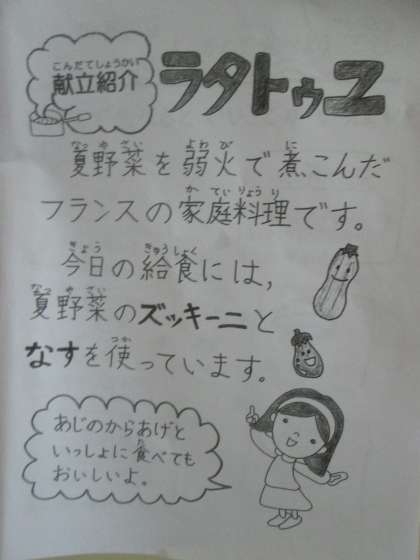 こんだてしょうかい
献立紹介
ラタトゥユ
なつやさい よわび に
夏野菜を弱火で煮こんだ
かていりょうり
フランスの家庭料理です。
きょう きゅうしょく
今日の給食には,
なつやさい
夏野菜のズッキーニと
つか
なすを使っています。
あじのからあげと
た
いっしょに食べても
おいしいよ。